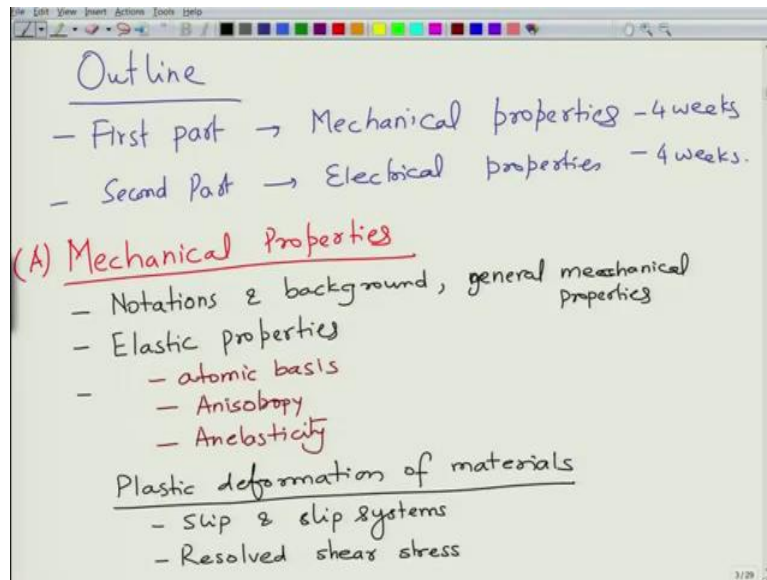 File Edit View Insert Actions Tools Help
Outline
- First part → Mechanical properties - 4 weeks
- Second Part → Electrical properties - 4 weeks.
(A) Mechanical Properties
- Notations & background, general mechanical
properties
- Elastic properties
- - atomic basis
- Anisotropy
- Anelasticity
Plastic deformation of materials
- Slip & slip systems
- Resolved shear stress
3/29